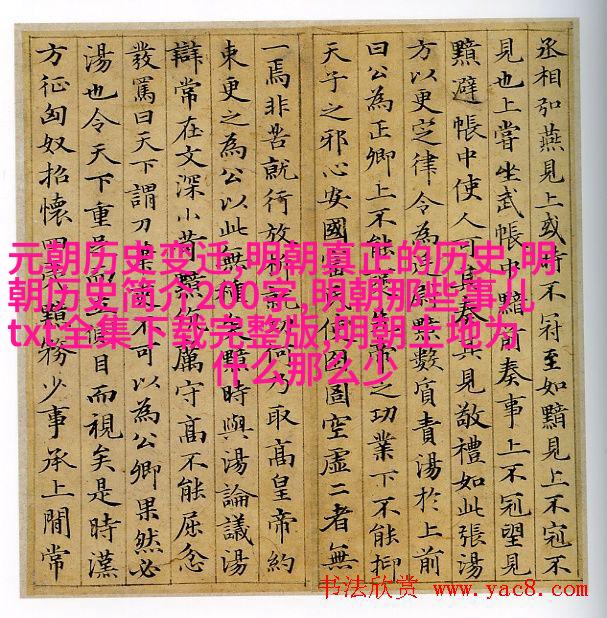 丞相弘燕見上或時不冠至如黯見上不冠不
見也上嘗坐武帳中黯前奏事上不冠望見
黯避帳中使人可其奏其見敬禮如此張湯
方以更定律令為廷尉黯數質責湯於上前
曰公為正卿上不能先帝之功業下不能抑
天子之邪心安國富民使囹圄空虛二者無
一焉非苦就行放析就功何乃取高皇帝約
束更之為公以此無種矣黯時與湯論議湯
辯常在文深小苛黯伉厲守高不能屈忿
發罵曰天下謂刀筆吏不可以為公卿果然必
湯也令天下重足而立側目而視矣是時漢
方征匈奴招懷四夷黯務少事承上間常
元朝历史变迁,明朝真正的历史,明
朝历史简介200字,明朝那些事儿
txt全集下载完整版,明朝土地为
什么那么少
书法欣赏 www.yac8.com